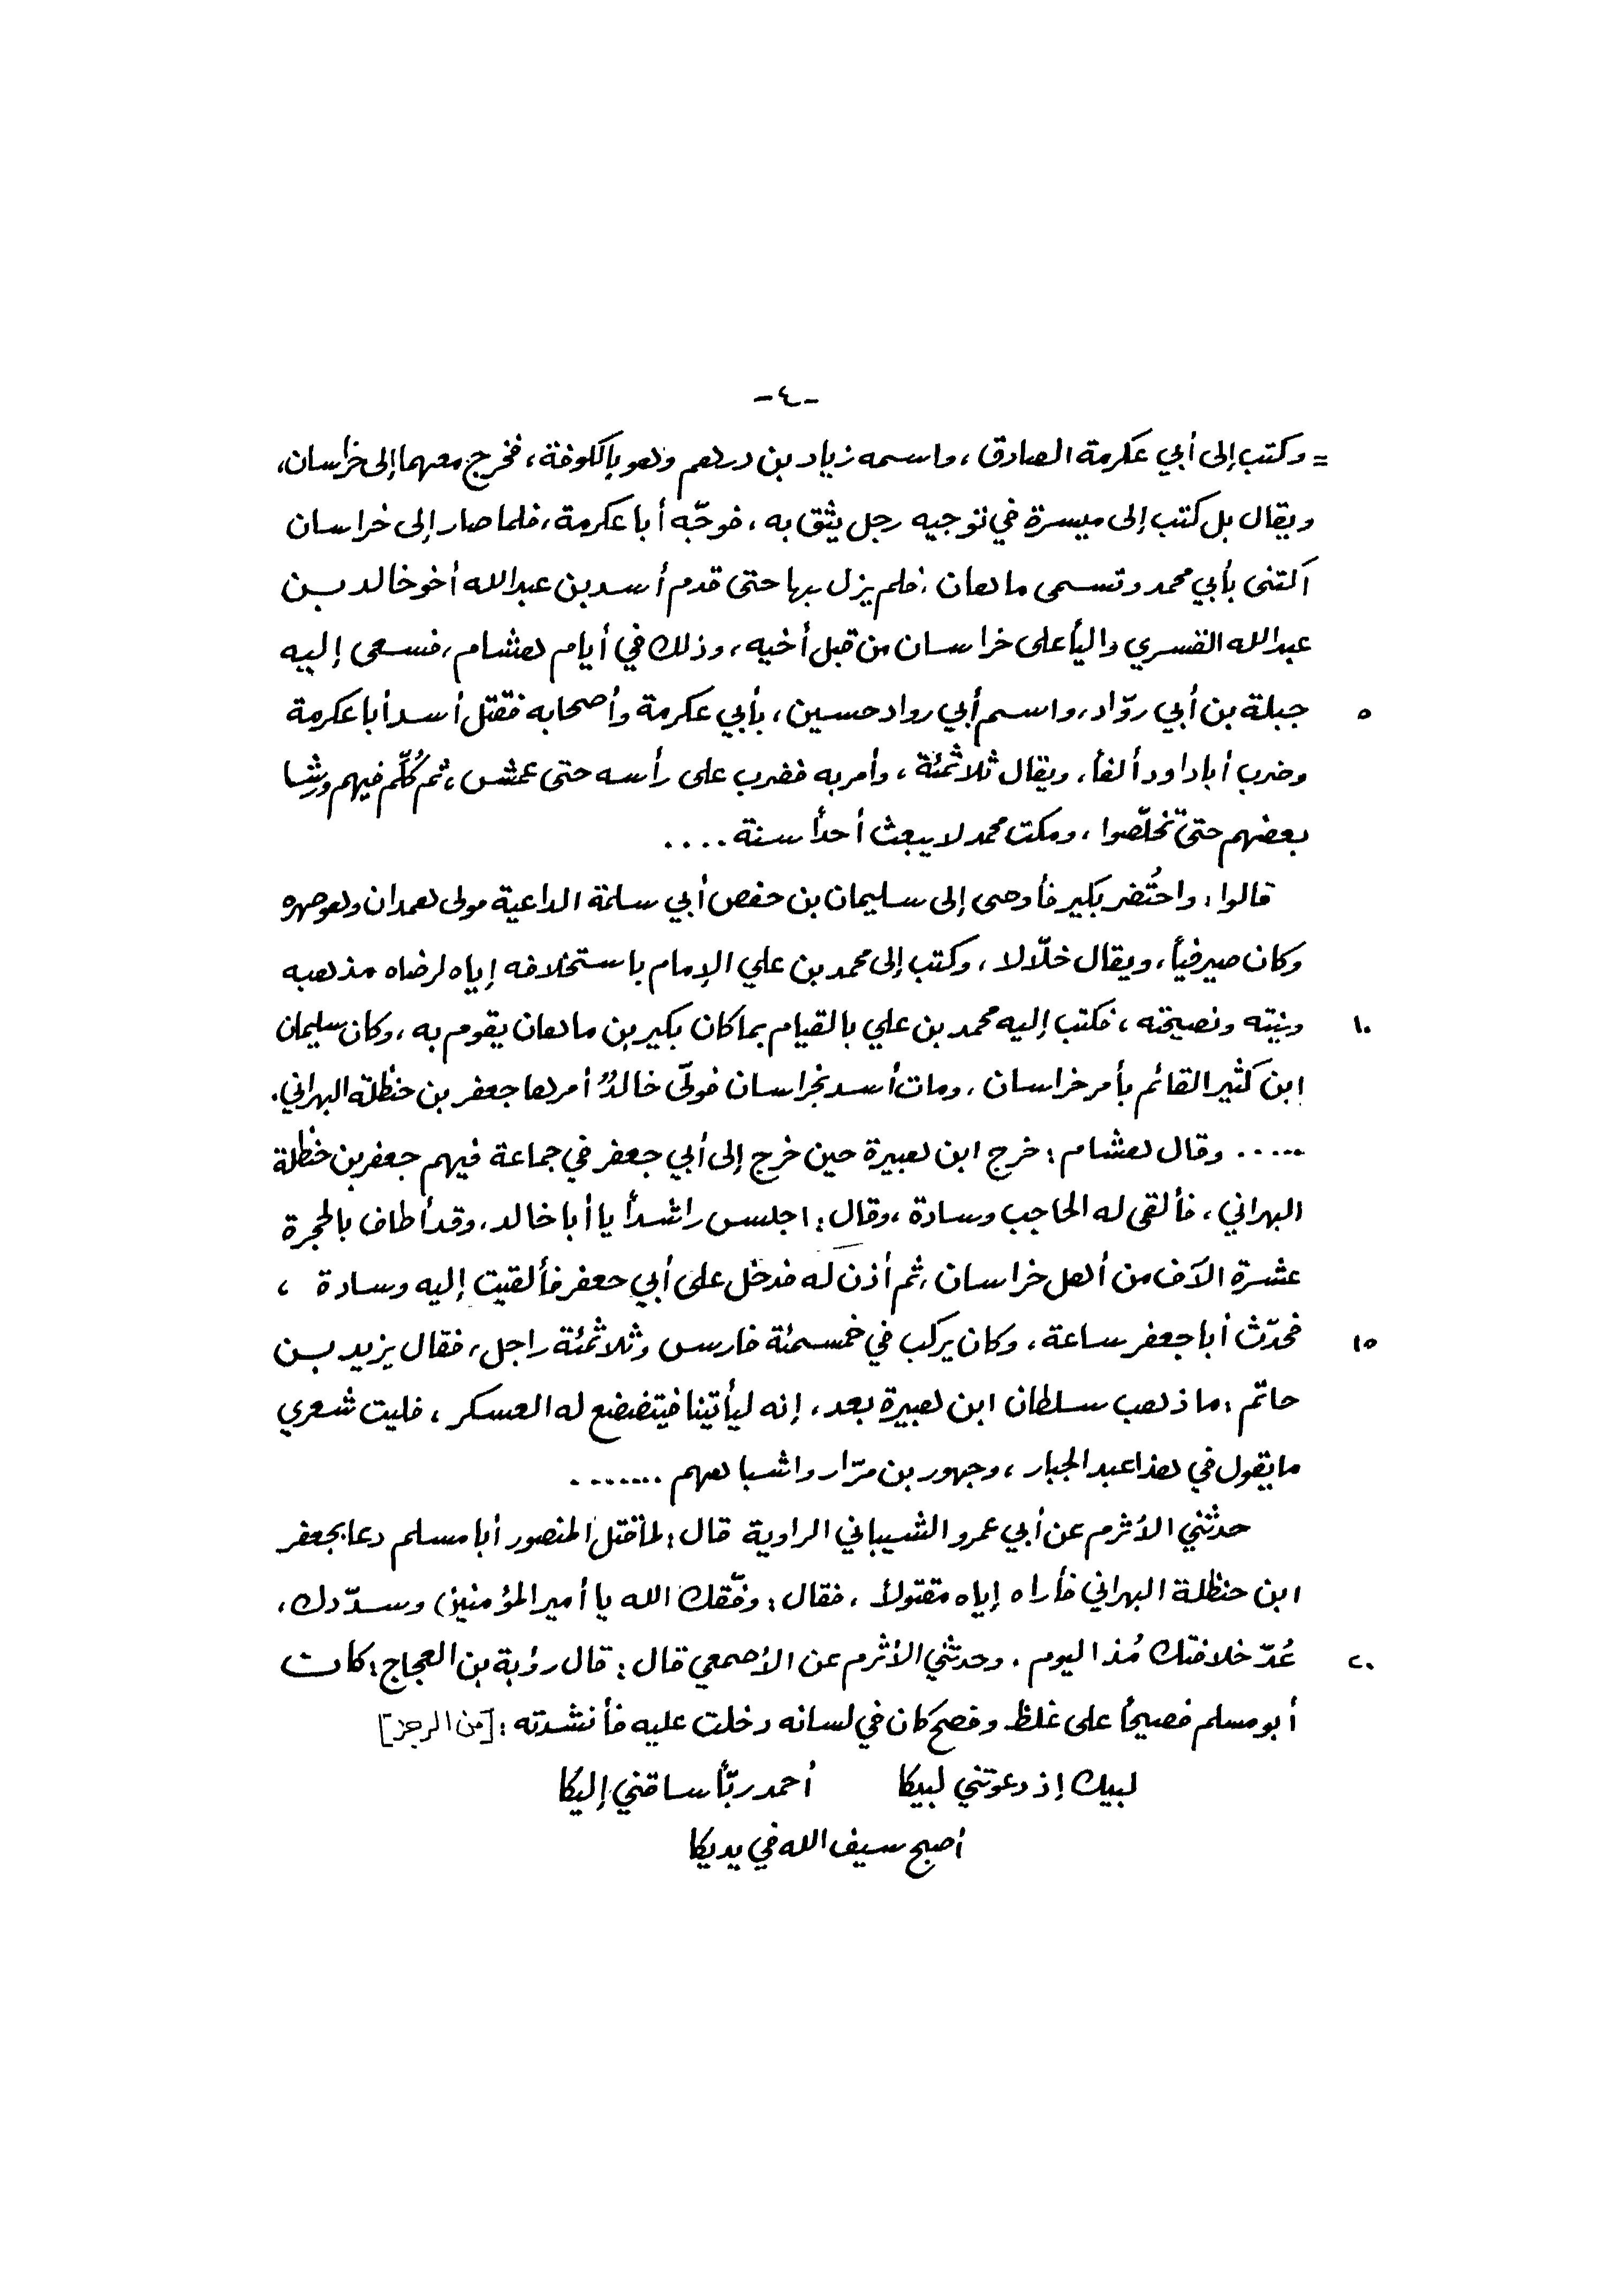 -٤-
= وكتب إلى أبي عكرمة الصادق، واسمه زياد بن درهم وهو بالكوفة، فخرج معهما إلى خراسان،
ويقال بل كتب إلى ميسرة في توجيه رجل يثق به، فوجّه أبا عكرمة، فلما صار إلى خراسان
اكتنى بأبي محمد وتسمى ماهان، فلم يزل بها حتى قدم أسد بن عبدالله أخو خالد بن
عبدالله القسري والياً على خراسان من قبل أخيه، وذلك في أيام هشام، فسعى إليه
٥ جبلة بن أبي روّاد، واسم أبي رواد حسين، بأبي عكرمة وأصحابه فقتل أسد أبا عكرمة
وضرب أبا داود ألفاً، ويقال ثلاثمئة، وأمر به فضرب على رأسه حتى عمش، ثم كُلّم فيهم ورشا
بعضهم حتى تخلّصوا، ومكث محمد لا يبعث أحداً سنة ....
قالوا: واحتُضر بكير فأوصى إلى سليمان بن حفص أبي سلمة الداعية مولى همدان وهو صهره
وكان صيرفياً، ويقال خلّالا، وكتب إلى محمد بن علي الإمام باستخلافه إياه لرضاه مذهبه
١٠ ونيته ونصيحته، فكتب إليه محمد بن علي بالقيام بما كان بكير بن ماهان يقوم به، وكان سليمان
ابن كثير القائم بأمر خراسان، ومات أسد بخراسان فولّى خالدٌ أمرها جعفر بن حنظلة البهراني.
..... وقال هشام: خرج ابن هبيرة حين خرج إلى أبي جعفر في جماعة فيهم جعفر بن حنظلة
البهراني، فألقى له الحاجب وسادة، وقال: اجلس راشداً يا أبا خالد، وقد أطاف بالحجرة
عشرة الآف من أهل خراسان، ثم أذن له فدخل على أبي جعفر فألقيت إليه وسادة ،
١٥ فحدّث أبا جعفر ساعة، وكان يركب في خمسمئة فارس وثلاثمئة راجل، فقال يزيد بن
حاتم: ما ذهب سلطان ابن هبيرة بعد، إنه ليأتينا فيتضعضع له العسكر، فليت شعري
ما يقول في هذا عبد الجبار، وجهور بن مرّار واشباههم .......
حدثني الأثرم عن أبي عمرو الشيباني الراوية قال: لما قتل المنصور أبا مسلم دعا بجعفر
ابن حنظلة البهراني فأراه إياه مقتولاً، فقال: وفّقك الله يا أمير المؤمنين وسدّدك،
٢٠ عُدّ خلافتك مُذ اليوم. وحدثني الأثرم عن الأصمعي قال: قال رؤبة بن العجاج: كان
أبو مسلم فصيحاً على غلظ وفصح كان في لسانه دخلت عليه فأنشدته: [من الرجز]
لبيك إذ دعوتني لبيكا أحمد ربّاً ساقني إليكا
أصبح سيف الله في يديكا